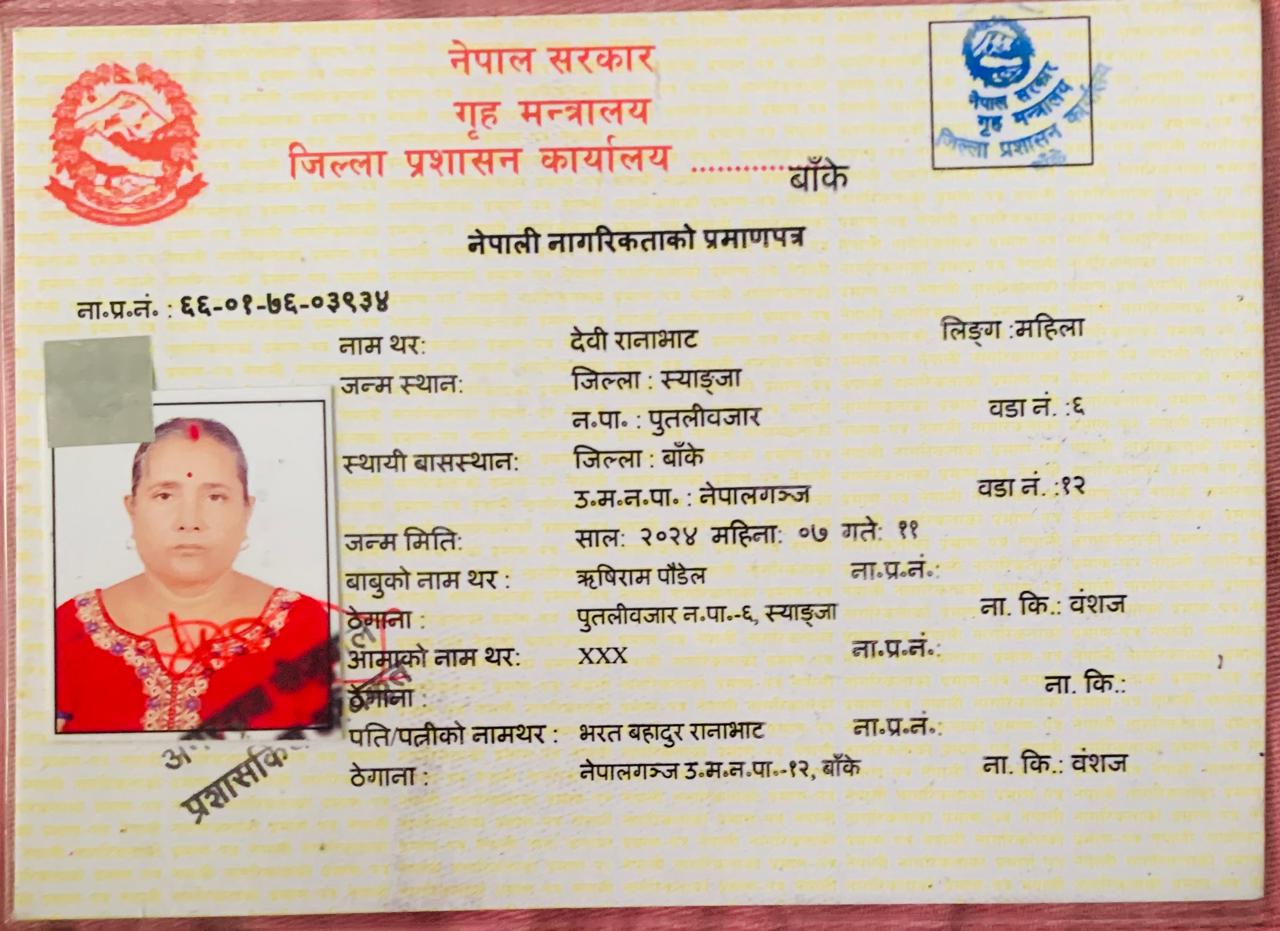 नेपाल सरकार
गृह मन्त्रालय
जिल्ला प्रशासन कार्यालय ............बाँके
नेपाल सरकार
गृह मन्त्रालय
जिल्ला प्रशासन कार्यालय
बाँके
नेपाली नागरिकताको प्रमाणपत्र
ना॰प्र॰नं॰ : ६६-०१-७६-०३९३४
नाम थर: देवी रानाभाट लिङ्ग :महिला
जन्म स्थान: जिल्ला : स्याङ्जा
न॰पा॰ : पुतलीवजार वडा नं॰ :६
स्थायी बासस्थान: जिल्ला : बाँके
उ॰म॰न॰पा॰ : नेपालगञ्ज वडा नं॰ :१२
जन्म मिति: साल: २०२४ महिना: ०७ गते: ११
बाबुको नाम थर : ऋषिराम पौडेल ना॰प्र॰नं॰:
ठेगाना : पुतलीवजार न॰पा॰-६, स्याङ्जा ना. कि.: वंशज
आमाको नाम थर: XXX ना॰प्र॰नं॰:
ठेगाना : ना. कि.:
पति/पत्नीको नामथर : भरत बहादुर रानाभाट ना॰प्र॰नं॰:
ठेगाना : नेपालगञ्ज उ॰म॰न॰पा॰-१२, बाँके ना. कि.: वंशज